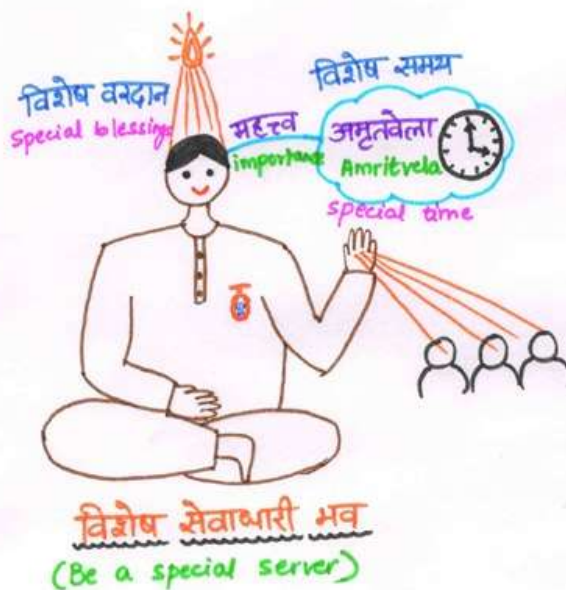 विशेष वरदान
Special blessings
महत्त्व
importance
विशेष समय
अमृतवेला
Amritvela
special time
विशेष सेवाधारी भव
(Be a special server)